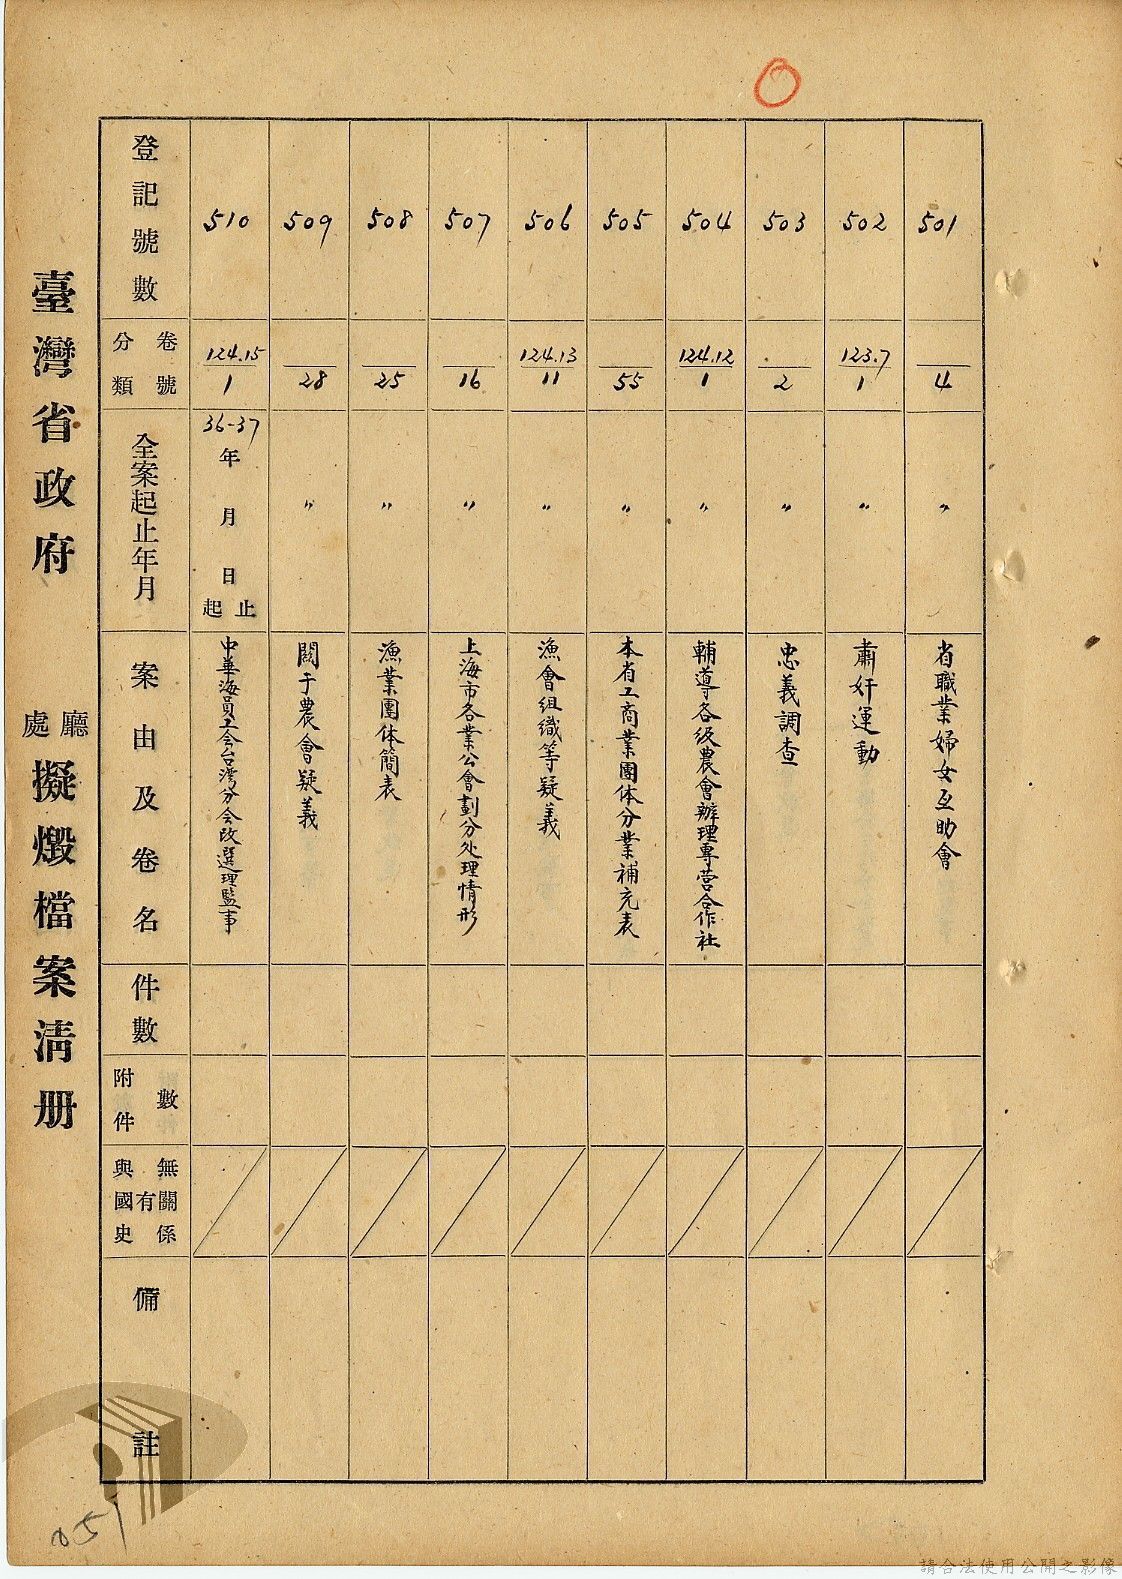 臺灣省政府 廳處 擬燬檔案清册
登記號數
卷號
分類
全案起止年月
案由及卷名
件數
附件數
與國史有無關係
備註
510
124.15
1
36-37
年 月 日
起止
中華海員工会台灣分会改選理監事
509
28
〃
關于農會疑義
508
25
〃
漁業團体簡表
507
16
〃
上海市各業公會劃分处理情形
506
124.13
11
〃
漁會組織等疑義
505
55
〃
本省工商業團体分業補充表
504
124.12
1
〃
輔導各級農會辦理專营合作社
503
2
〃
忠義調查
502
123.7
1
〃
肅奸運動
501
4
〃
省職業婦女互助會
051
請合法使用公開之影像